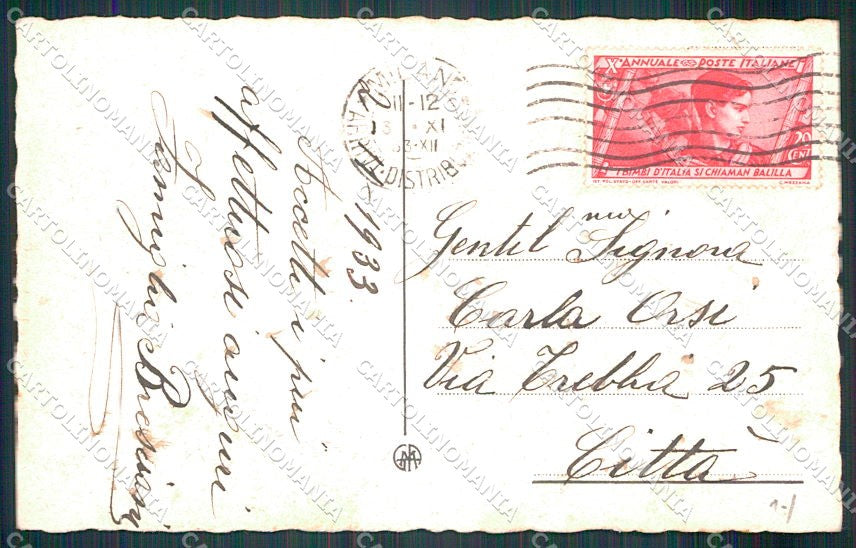 2-11-1933.
Accetti i più
affettuosi auguri
Famiglia
MILANO
11-12
XI
33-XII
DISTRIB
X° ANNUALE POSTE ITALIANE
20
CENT
I BIMBI D'ITALIA SI CHIAMAN BALILLA
IST. POL. STATO-OFF. CARTE VALORI C. MEZZANA
Gentilma Signora
Carla Orsi
Via Trebbia 25
Città
CARTOLINOMANIA